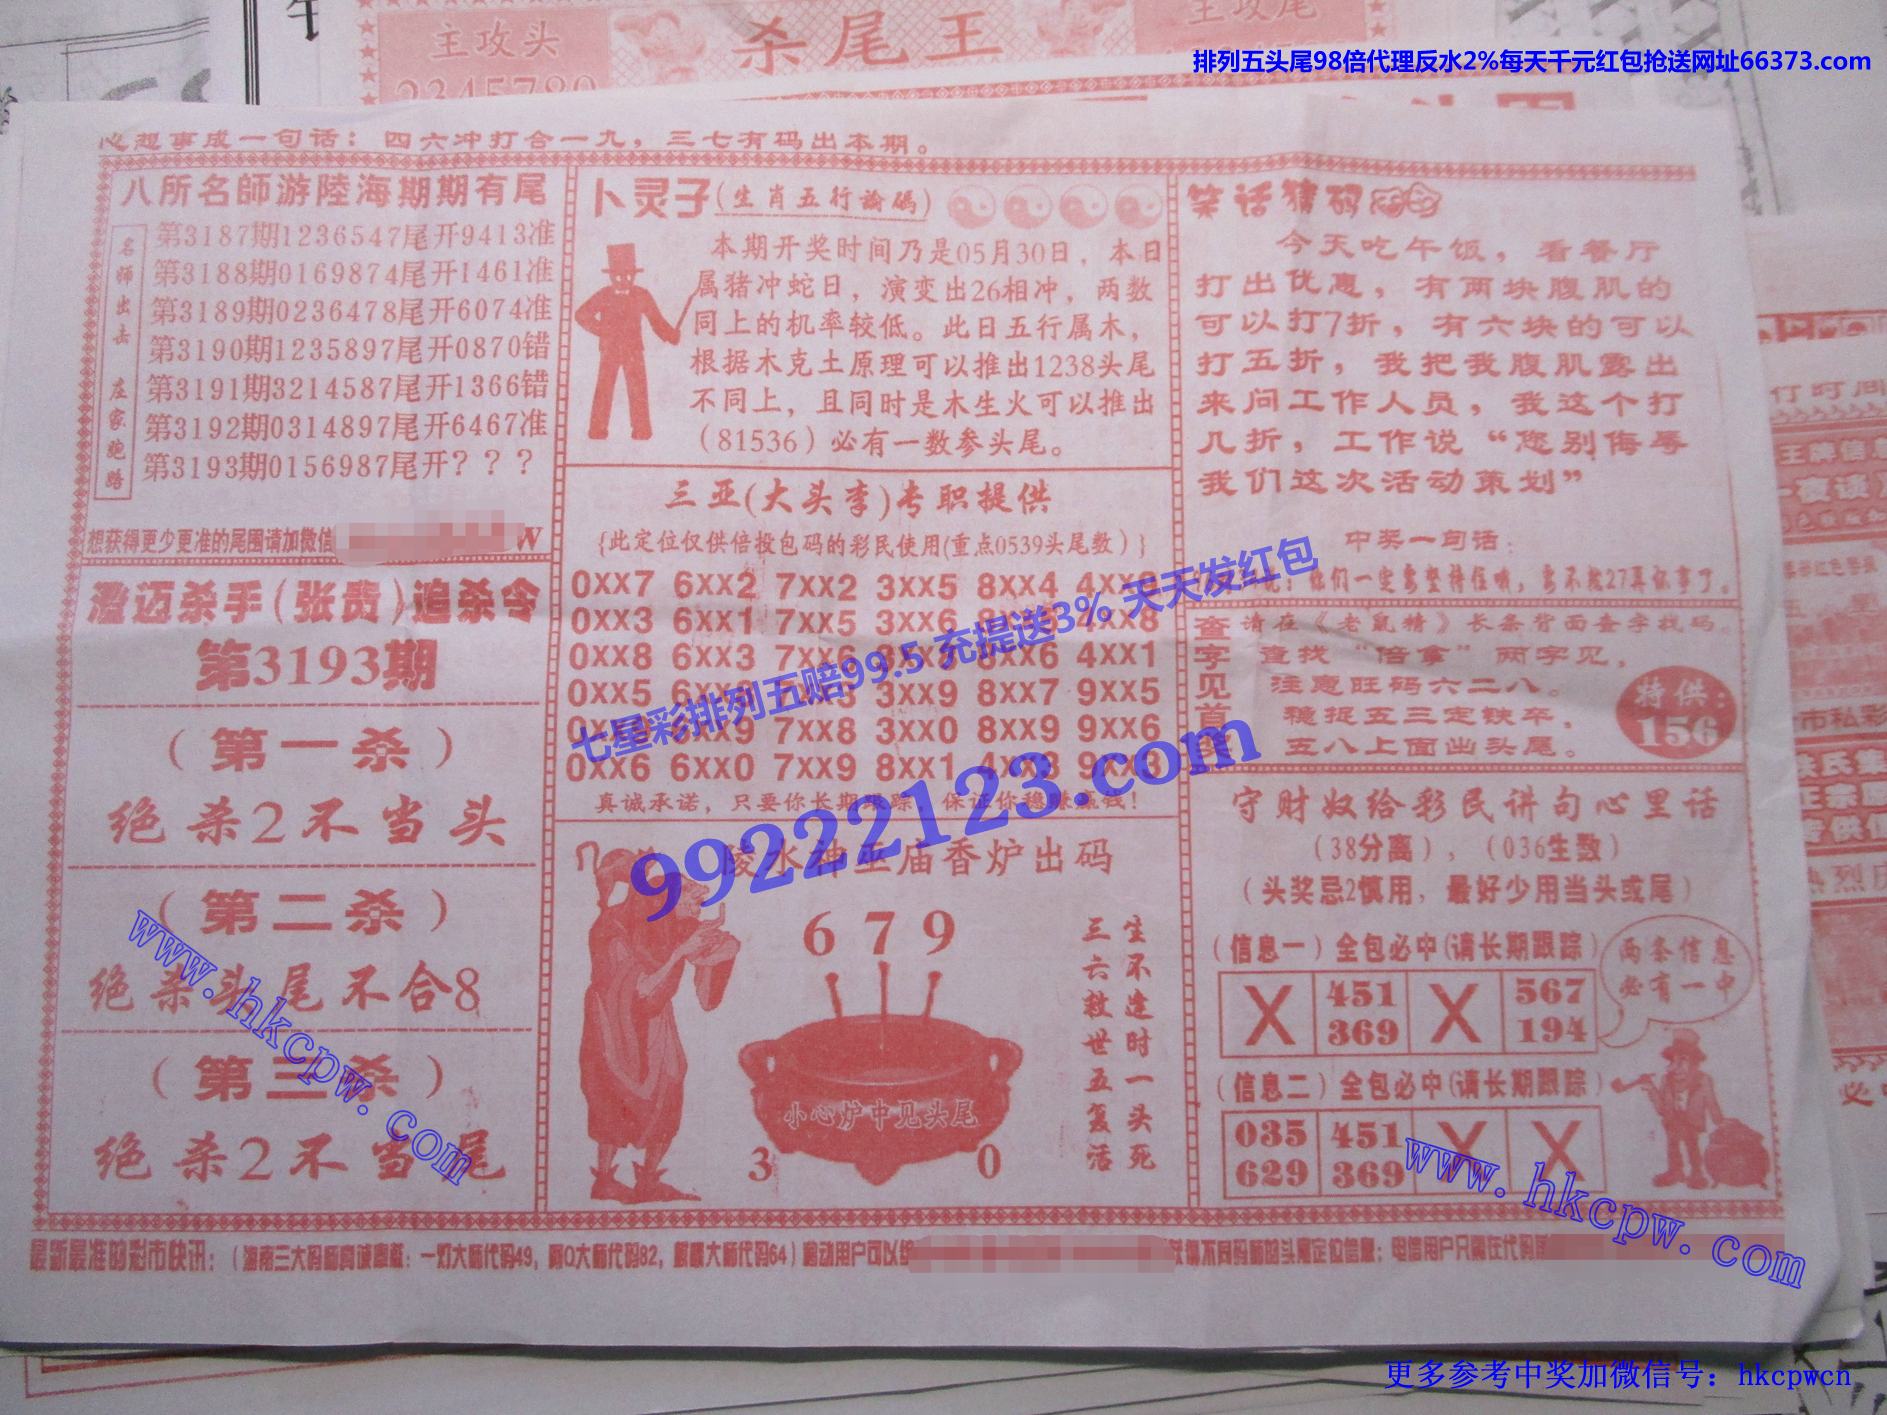 主攻头
杀尾王
主攻尾
2345789
排列五头尾98倍代理反水2%每天千元红包抢送网址66373.com
心想事成一句话：四六冲打合一九，三七有码出本期。
八所名師游陸海期期有尾
名师出击 庄家跑路
第3187期1236547尾开9413准
第3188期0169874尾开1461准
第3189期0236478尾开6074准
第3190期1235897尾开0870错
第3191期3214587尾开1366错
第3192期0314897尾开6467准
第3193期0156987尾开？？？
想获得更少更准的尾围请加微信
W
澄迈杀手(张贵)追杀令
第3193期
（第一杀）
绝杀2不当头
（第二杀）
绝杀头尾不合8
（第三杀）
绝杀2不当尾
卜灵子(生肖五行論碼)
本期开奖时间乃是05月30日，本日
属猪冲蛇日，演变出26相冲，两数
同上的机率较低。此日五行属木，
根据木克土原理可以推出1238头尾
不同上，且同时是木生火可以推出
（81536）必有一数参头尾。
三亚(大头李)专职提供
{此定位仅供倍投包码的彩民使用(重点0539头尾数）}
0XX7 6XX2 7XX2 3XX5 8XX4
0XX3 6XX1 7XX5 3XX6 4XX8
0XX8 6XX3 8XX6 4XX1
0XX5 3XX9 8XX7 9XX5
7XX8 3XX0 8XX9 9XX6
0XX6 6XX0 7XX9 8XX1 4XX3 9XX3
真诚承诺，只要你长期跟踪，保证你稳赚赢钱！
陵水神巫庙香炉出码
6 7 9
生不逢时一头死
三六救世五复活
小心炉中见头尾
3
0
笑话猜码
今天吃午饭，看餐厅
打出优惠，有两块腹肌的
可以打7折，有六块的可以
打五折，我把我腹肌露出
来问工作人员，我这个打
几折，工作说“您别侮辱
我们这次活动策划”
中奖一句话：
查字见首奖
请在《老鼠精》长条背面查字找码。
查找“倍拿”两字见，
注意旺码六二八。
稳捉五三定铁卒，
五八上面出头尾。
特供：
156
守财奴给彩民讲句心里话
（38分离），（036生数）
（头奖忌2慎用，最好少用当头或尾）
（信息一）全包必中(请长期跟踪）
X 451 X 567
369 194
两条信息
必有一中
（信息二）全包必中(请长期跟踪）
035 451 X X
629 369
最新最准的彩市快讯：
七星彩排列五赔99.5 充提送3% 天天发红包
99222123.com
www.hkcpw.com
www.hkcpw.com
更多参考中奖加微信号：hkcpwcn